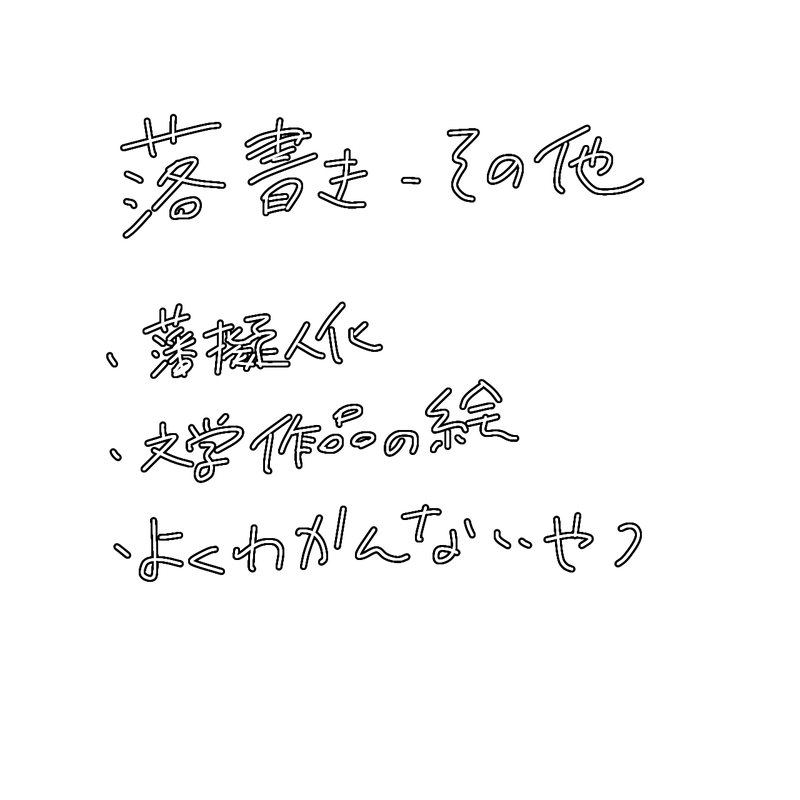 落書き-その他
・藩擬人化
・文学作品の絵
・よくわかんないやつ